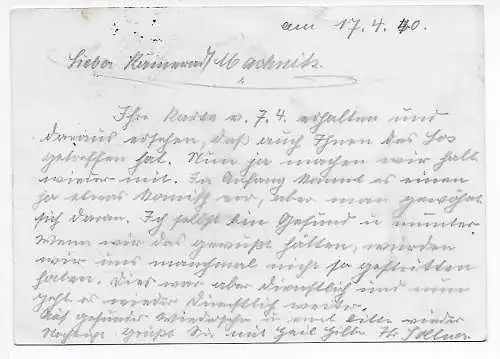 am 17.4.40.
Lieber Kamerad Machnik.
Ihre Karte v. 7.4. erhalten und
daraus ersehen, daß auch Ihnen das Los
getroffen hat. Nun ja machen wir halt
wieder mit. Im Anfang kommt es einen
ja etwas komisch vor, aber man gewöhnt
sich daran. Ich selbst bin Gesund u. munter.
Wenn wir das gewußt hätten, würden
wir uns manchmal nicht so gestritten
haben. Dies war aber dienstlich und nun
geht es wieder dienstlich weiter.
Auf gesundes Wiedersehn u. bitte wieder
Nachricht Grüßt Sie mit Heil Hitler